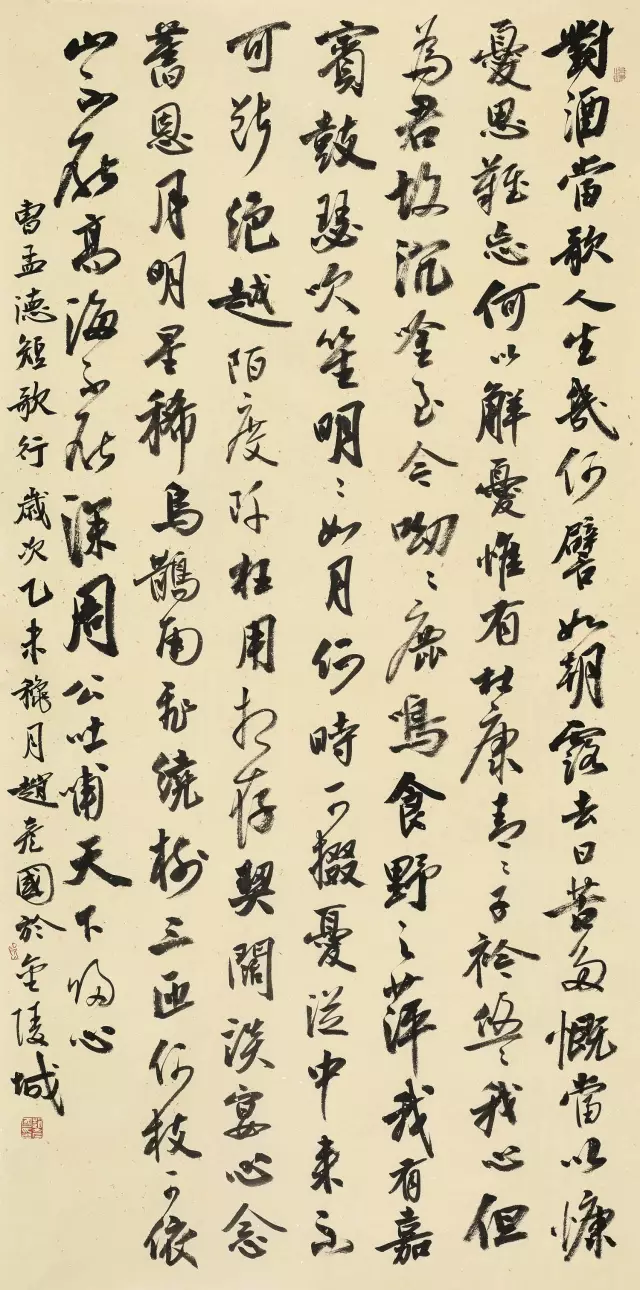 對酒當歌人生幾何譬如朝露去日苦多慨當以慷
憂思難忘何以解憂惟有杜康青〻子衿悠〻我心但
為君故沉吟至今呦〻鹿鳴食野之萍我有嘉
賓鼓瑟吹笙明〻如月何時可掇憂從中來不
可斷絕越陌度阡枉用相存契闊談宴心念
舊恩月明星稀烏鵲南飛繞樹三匝何枝可依
山不厭高海不厭深周公吐哺天下歸心
曹孟德短歌行歲次乙未穐月趙彥國於金陵城